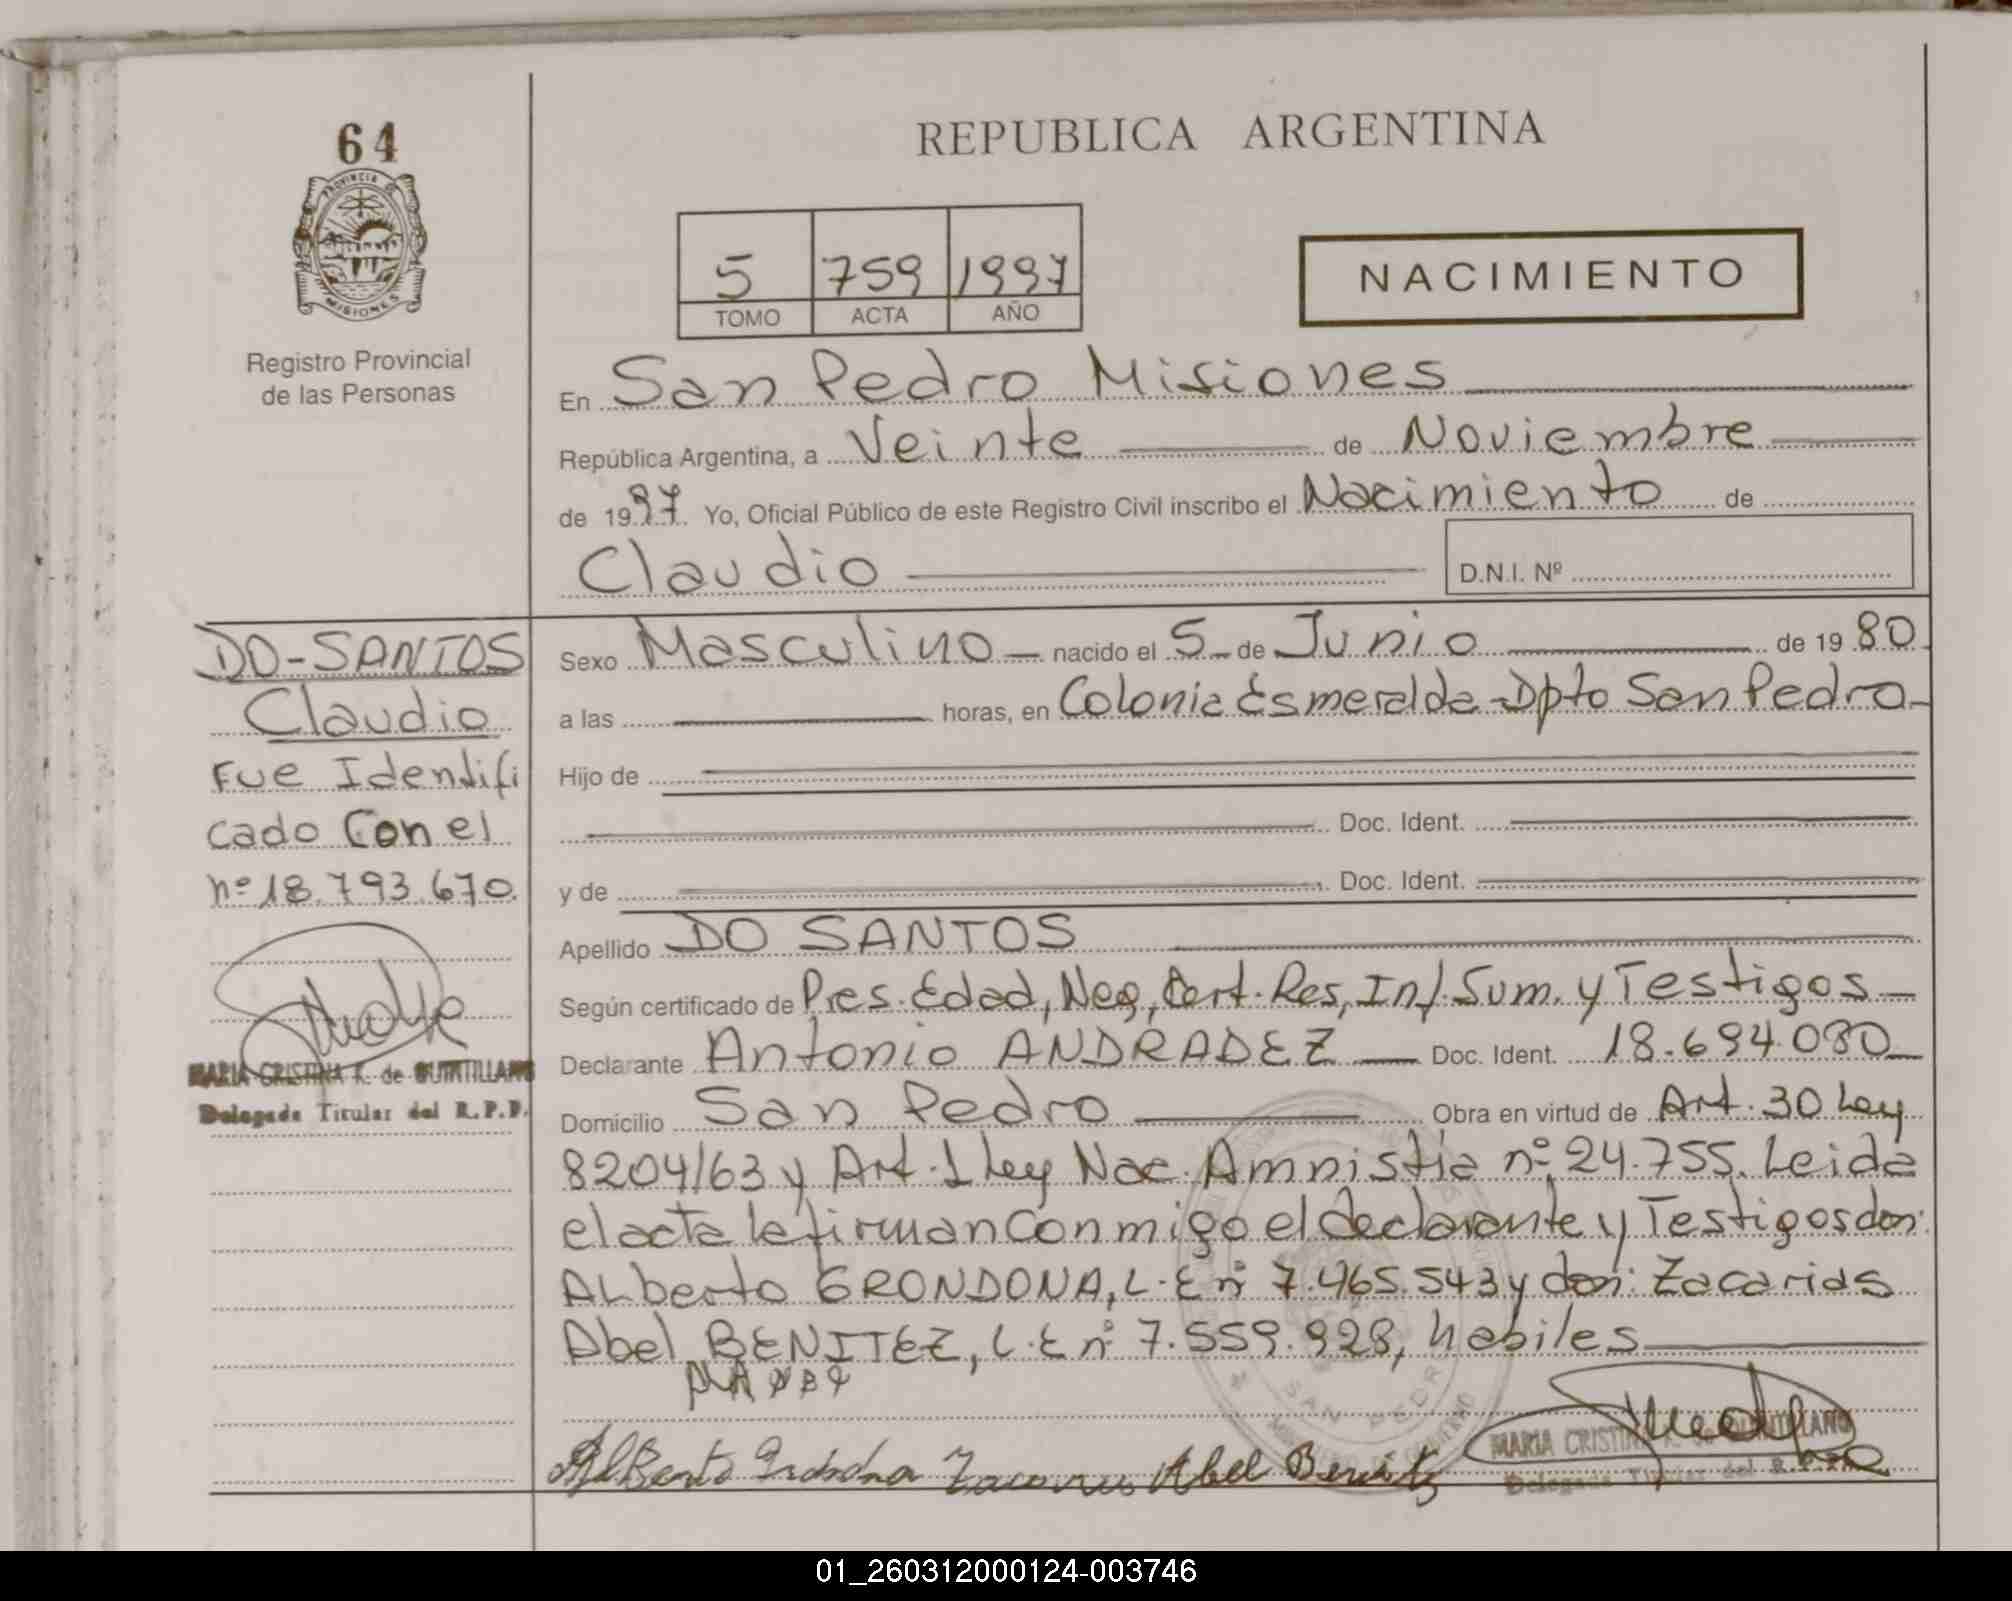 64
PROVINCIA DE
MISIONES
Registro Provincial
de las Personas
REPUBLICA ARGENTINA
5 759 1997
TOMO ACTA AÑO
NACIMIENTO
En San Pedro Misiones
República Argentina, a Veinte de Noviembre
de 1997. Yo, Oficial Público de este Registro Civil inscribo el Nacimiento de
Claudio D.N.I. Nº
DO-SANTOS
Claudio
Fue Identifi
cado Con el
nº 18.793.670.
MARIA CRISTINA K. de
Delegada Titular del R.P.P.
Sexo Masculino nacido el 5 de Junio de 1980
a las horas, en Colonia Esmeralda - Dpto San Pedro
Hijo de
Doc. Ident.
y de Doc. Ident.
Apellido DO SANTOS
Según certificado de Pres. Edad, Neg, Cert. Res, Inf. Sum. y Testigos
Declarante Antonio ANDRADEZ Doc. Ident. 18.694.080
Domicilio San Pedro Obra en virtud de Art. 30 Ley
8204/63 y Art. 1 Ley Nac. Amnistia nº 24.755. Leida
el acta la firman Conmigo el declarante y Testigos don:
Alberto GRONDONA, L.E nº 7.465.543 y don: Zacarias
Abel BENITEZ, L.E nº 7.559.928, habiles
SAN PEDRO
Alberto Grondona Zacarias Abel Benitez
MARIA CRISTINA
Delegada Titular del R.P.P.
01_260312000124-003746